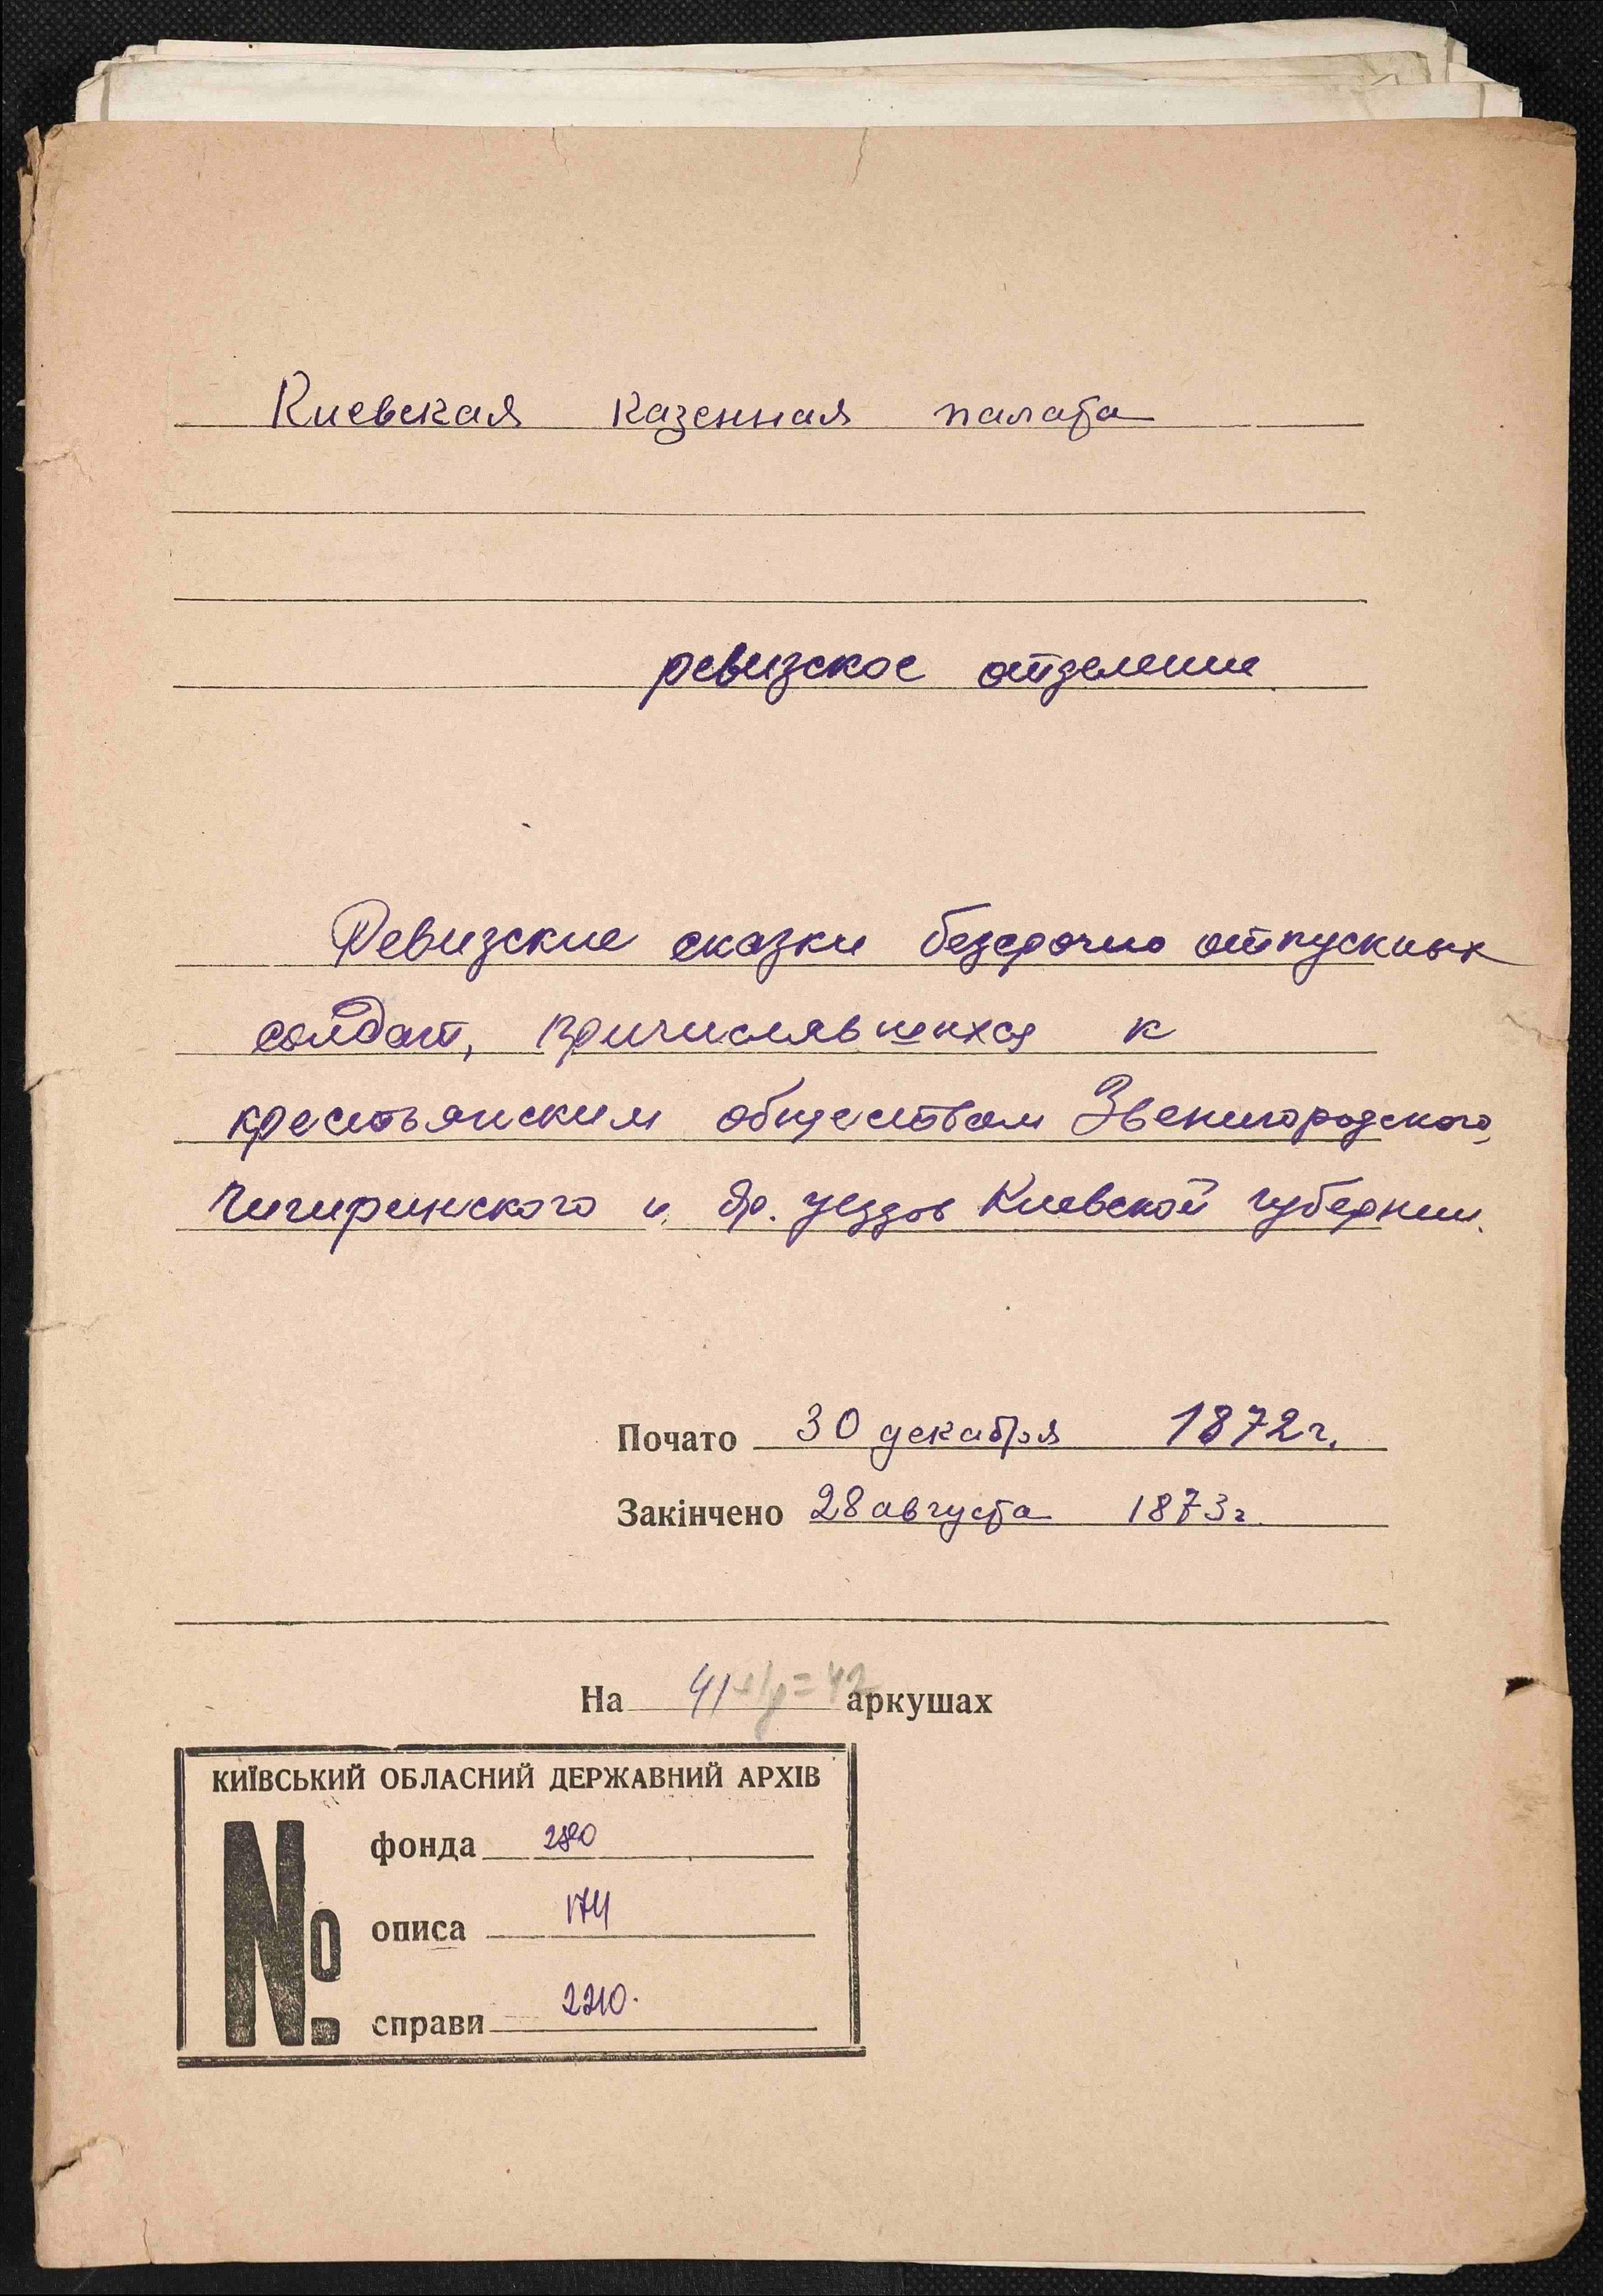 Киевская казенная палата
ревизское отделение
Ревизские сказки безсрочно отпускных
солдат, причислявшихся к
крестьянским обществам Звенигородского,
Чигиринского и др. уездов Киевской губернии.
Почато 30 декабря 1872 г.
Закінчено 28 августа 1873 г.
На 41+1у=42 аркушах
КИЇВСЬКИЙ ОБЛАСНИЙ ДЕРЖАВНИЙ АРХІВ
№
фонда 280
описа 174
справи 2210.